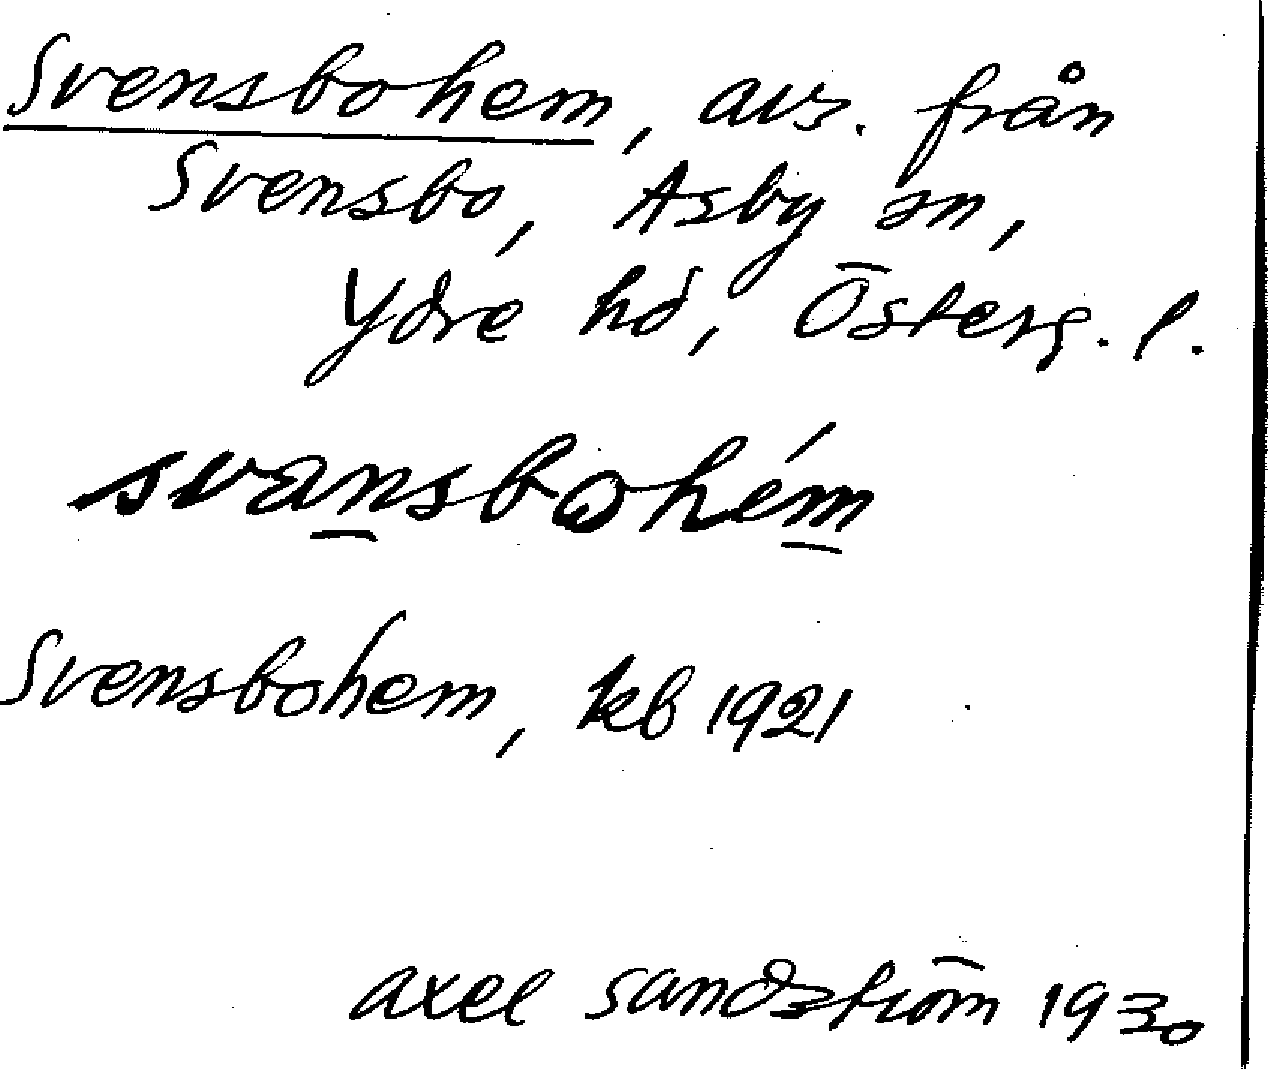 Svensbohem, avs. från
Svensbo, Asby sn,
Ydre hd, Österg. l.
svänsbohém
Svensbohem, kb 1921
axel sandström 1930